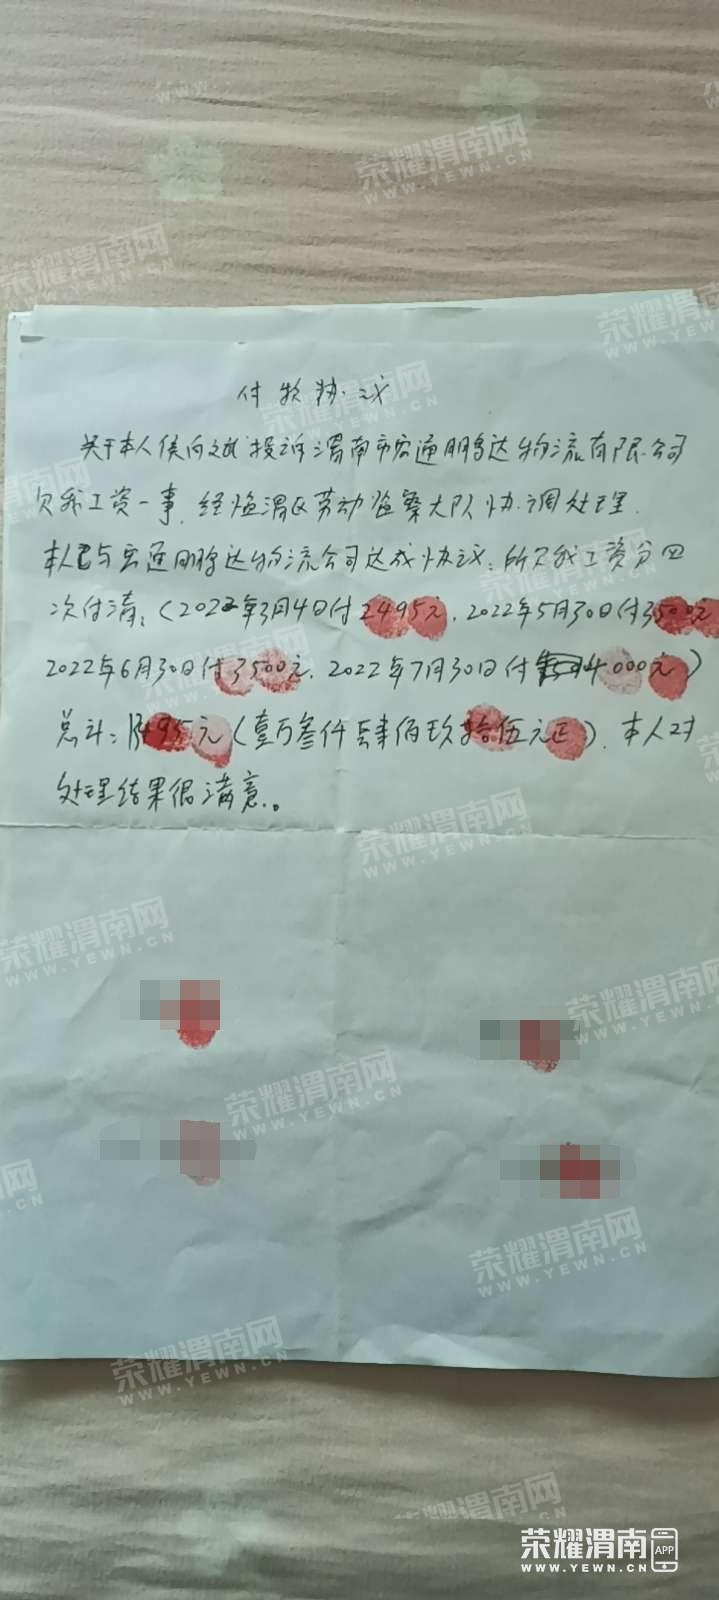 荣耀渭南网
WWW.YEWN.CN
付款协议
关于本人侯向斌投诉渭南市宏通鹏达物流有限公司
欠我工资一事,经临渭区劳动监察大队协调处理.
本人已与宏通鹏达物流公司达成协议:所欠我工资分四
次付清:(2022年3月4日付2495元.2022年5月30日付3500元
2022年6月30日付3500元.2022年7月30日付4000元)
总计:13495元(壹万叁仟肆佰玖拾伍元正).本人对
处理结果很满意。
荣耀渭南APP